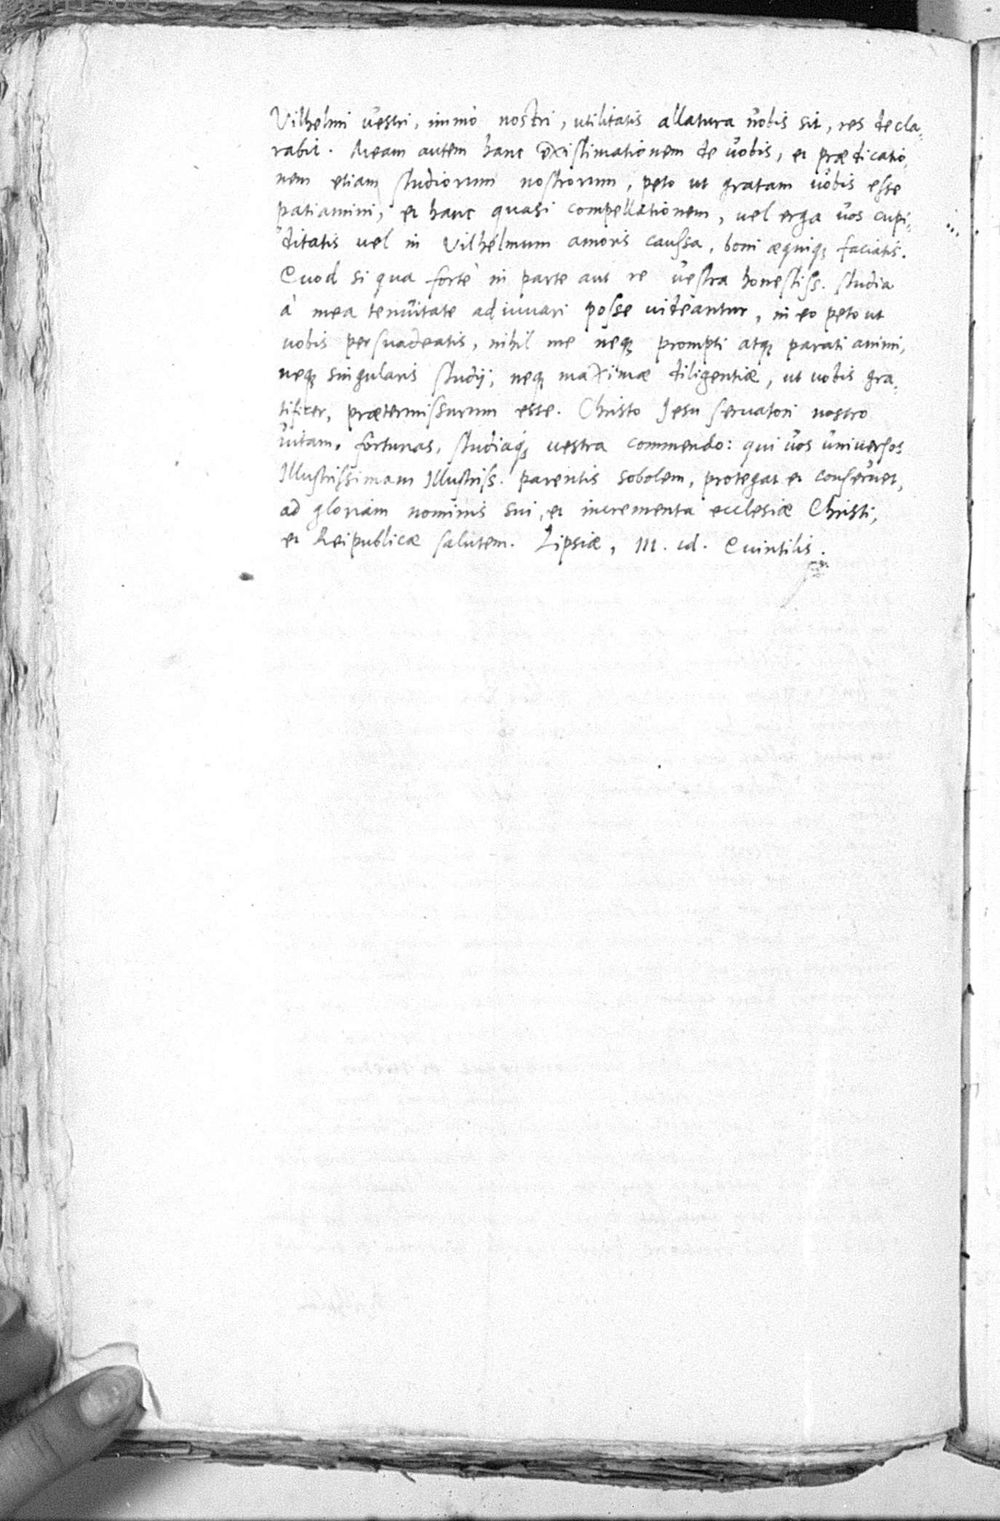 Vilhelmi vestri, immò nostri, utilitatis allatura vobis sit, res decla,
rabit. Meam autem hanc existimationem de vobis, et prædicatio,
nem etiam studiorum nostrorum, peto ut gratam vobis esse
patiamini, et hanc quasi compellationem, vel erga vos cupi,
ditatis vel in Vilhelmum amoris caussa, boni æquiq; faciatis.
Quod si qua fortè in parte aut re vestra honestiss. studia
à mea tenuitate adiuvari posse videantur, in eo peto ut
vobis persuadeatis, nihil me neq; prompti atq; parati animi,
neq; singularis studij, neq; maximæ diligentiæ, ut vobis gra,
tificer, prætermissurum esse. Christo Jesu servatori nostro
vitam, fortunas, studiaq; vestra commendo: qui vos universos
Illustrissimam Illustriss. parentis sobolem, protegat et conservet,
ad gloriam nominis sui, et incrementa ecclesiæ Christi,
et Reipublicæ salutem. Lipsiæ, III. id. Quintilis.